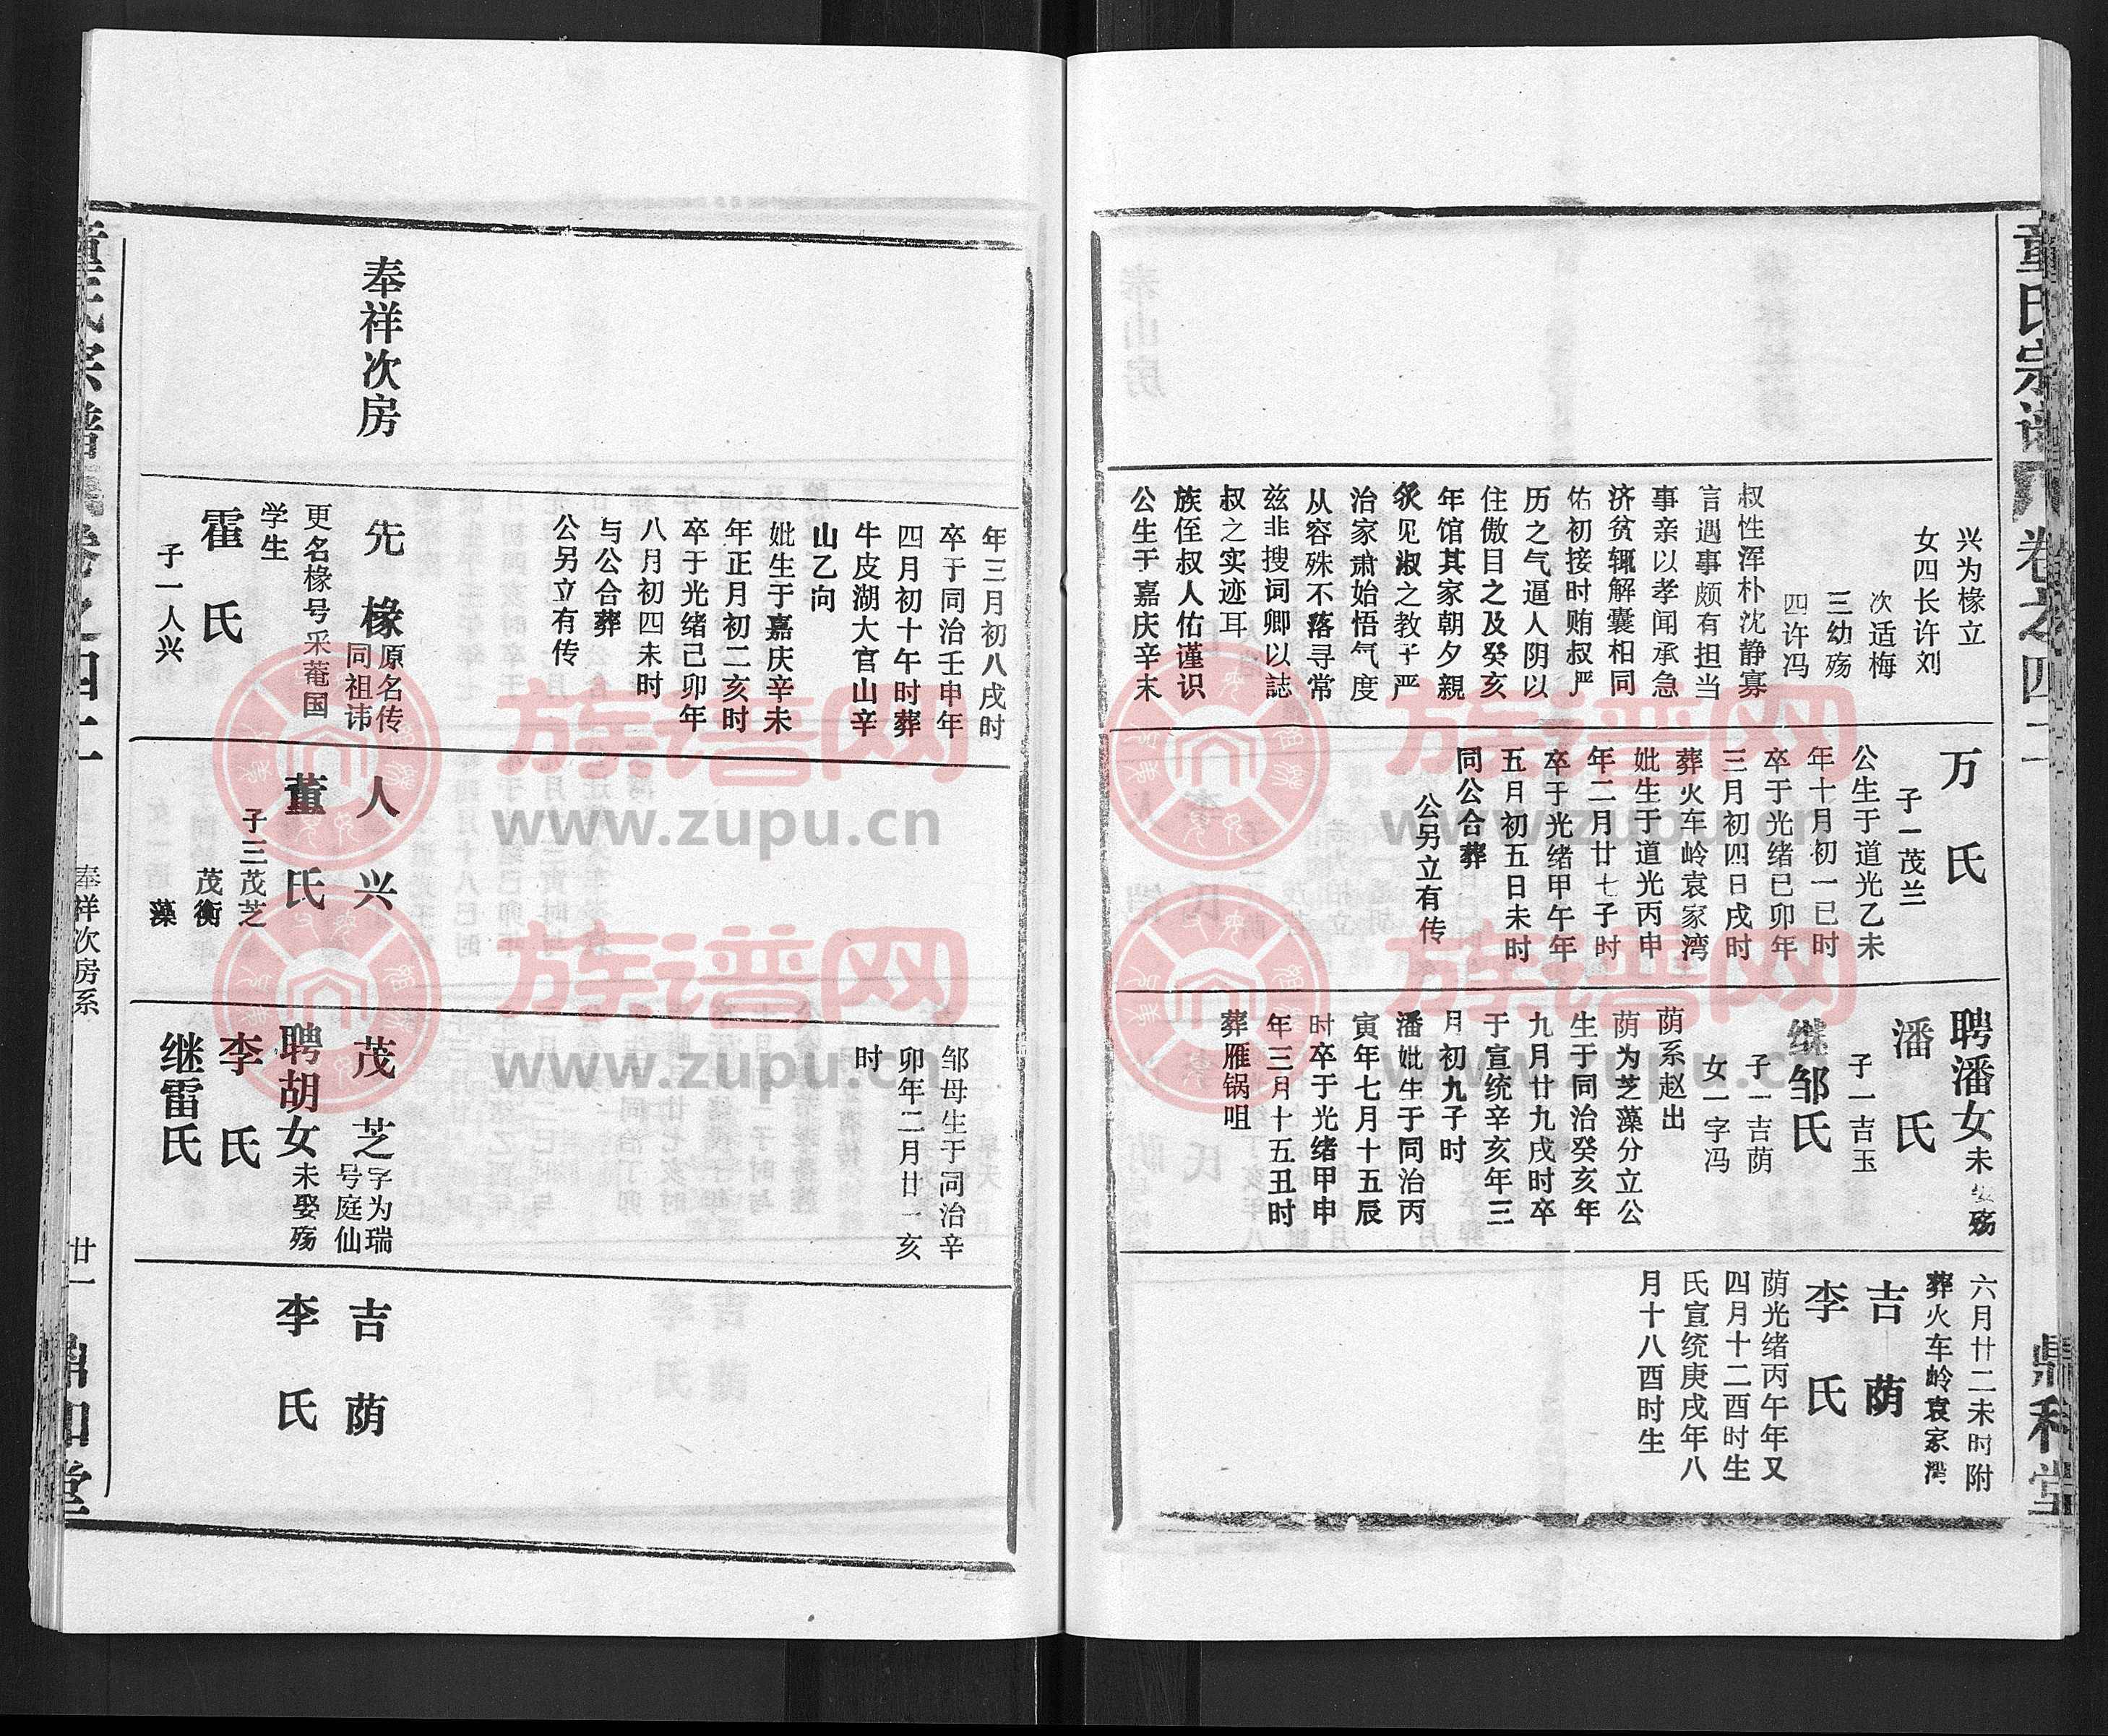 童氏宗谱 卷之四十一
鼎和堂
兴为椽立
女四长许刘
次适梅
三幼殇
四许冯
叔性浑朴沈静寡
言遇事颇有担当
事亲以孝闻承急
济贫辄解囊相同
佑初接时贿叔严
历之气逼人阴以
住傲目之及癸亥
年馆其家朝夕親
炙见淑之教子严
治家肃始悟气度
从容殊不落寻常
兹非搜词卿以誌
叔之实迹耳
族侄叔人佑谨识
公生于嘉庆辛未
万氏
子一茂兰
公生于道光乙未
年十月初一巳时
卒于光绪己卯年
三月初四日戌时
葬火车岭袁家湾
妣生于道光丙申
年二月廿七子时
卒于光绪甲午年
五月初五日未时
同公合葬
公另立有传
聘潘女未娶殇
潘氏
子一吉玉
继邹氏
子一吉荫
女一字冯
荫系赵出
荫为芝藻分立公
生于同治癸亥年
九月廿九戌时卒
于宣统辛亥年三
月初九子时
潘妣生于同治丙
寅年七月十五辰
时卒于光绪甲申
年三月十五丑时
葬雁锅咀
六月廿二未时附
葬火车岭袁家湾
吉荫
李氏
荫光绪丙午年又
四月十二酉时生
氏宣统庚戌年八
月十八酉时生
奉祥次房
年三月初八戌时
卒于同治壬申年
四月初十午时葬
牛皮湖大官山辛
山乙向
妣生于嘉庆辛未
年正月初二亥时
卒于光绪己卯年
八月初四未时
与公合葬
公另立有传
先椽原名传
同祖讳
更名椽号采菴国
学生
霍氏
子一人兴
人兴
董氏
子三茂芝
茂衡
藻
邹母生于同治辛
卯年二月廿一亥
时
茂芝字为瑞
号庭仙
聘胡女未娶殇
李氏
继雷氏
吉荫
李氏
童氏宗谱 卷之四十一
奉祥次房系
廿一
鼎和堂
族谱网
www.zupu.cn
族谱网
www.zupu.cn
族谱网
www.zupu.cn
族谱网
www.zupu.cn